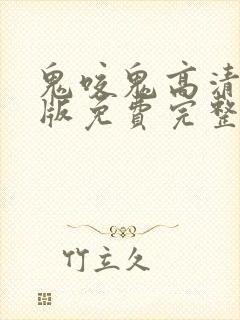 鬼咬鬼高清
版免费完整
竹立久